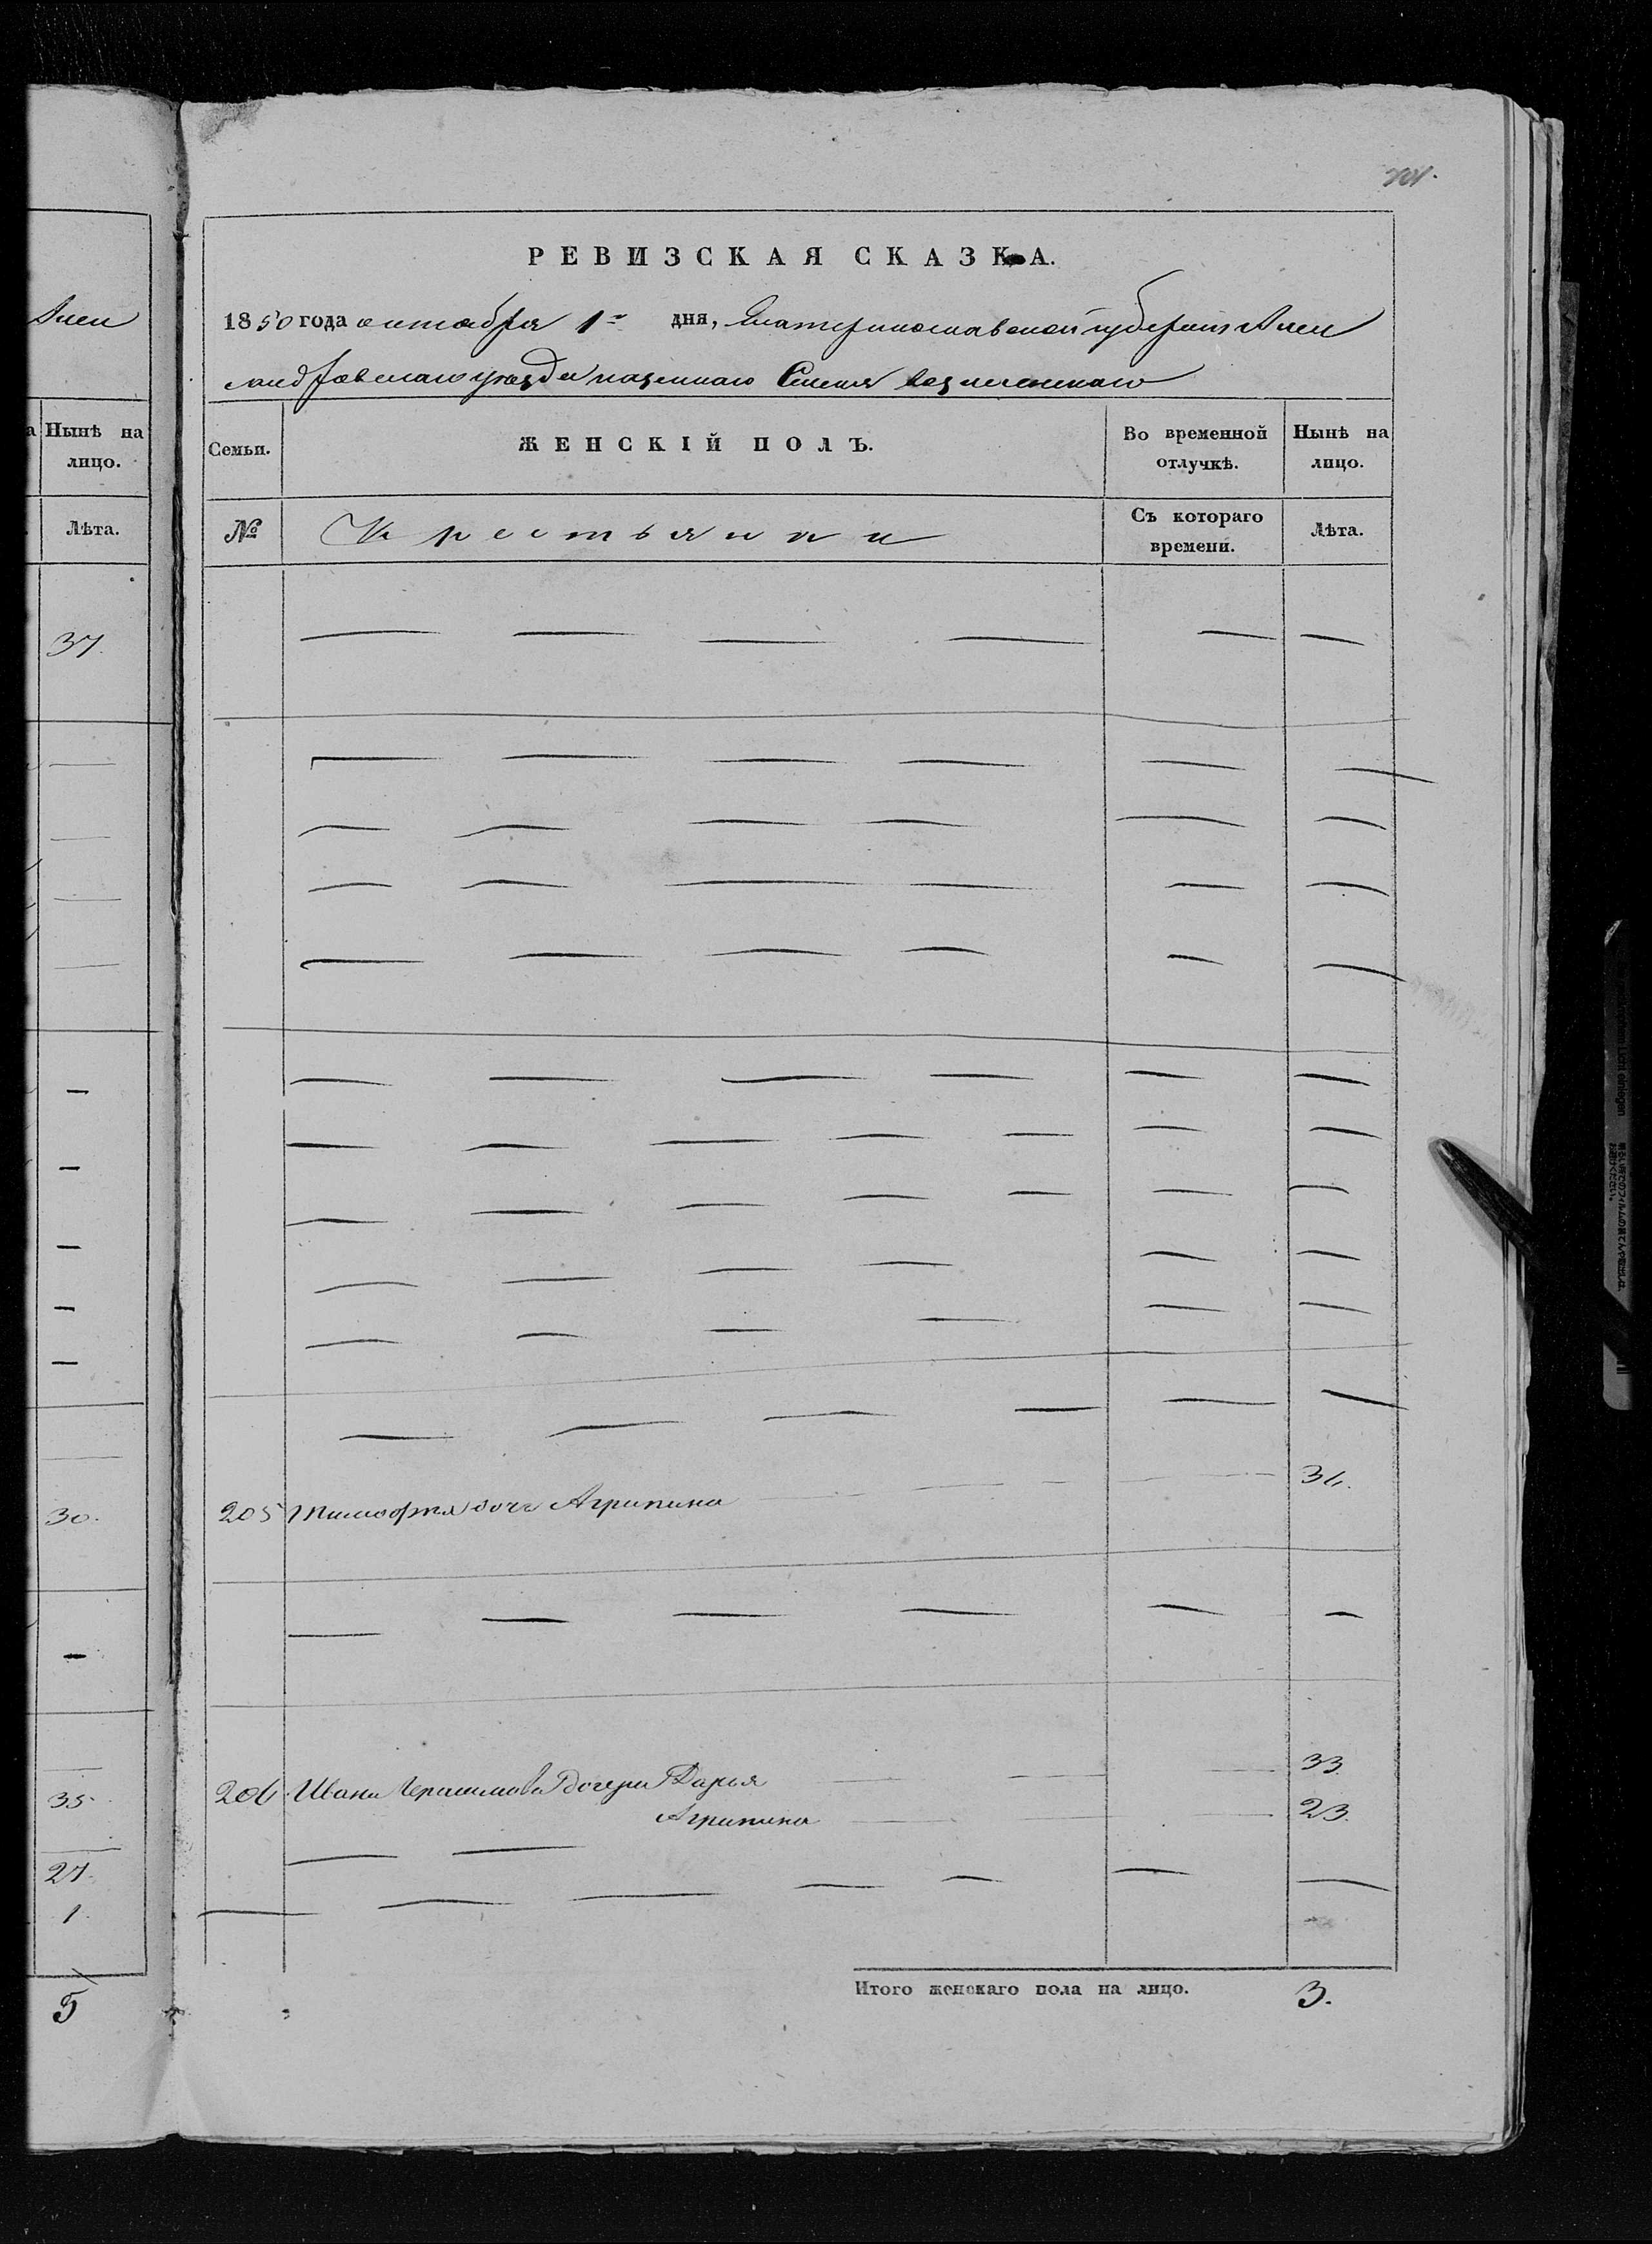 Алек
Нынѣ на
лицо.
Лѣта.
37.
30.
35.
27.
1.
5
201.
РЕВИЗСКАЯ СКАЗКА.
1850 года октября 1го дня, Екатеринославской губернии Алек
сандровскаго уѣзда казеннаго Селения Вознесенскаго
Семьи.
ЖЕНСКІЙ ПОЛЪ.
Во временной
отлучкѣ.
Нынѣ на
лицо.
№
Крестьянки
Съ котораго
времени.
Лѣта.
205 Тимофея дочь Агрипина
206 Ивана Герасимова дочери Дарья 33.
Агрипина 23.
Итого женскаго пола на лицо. 3.